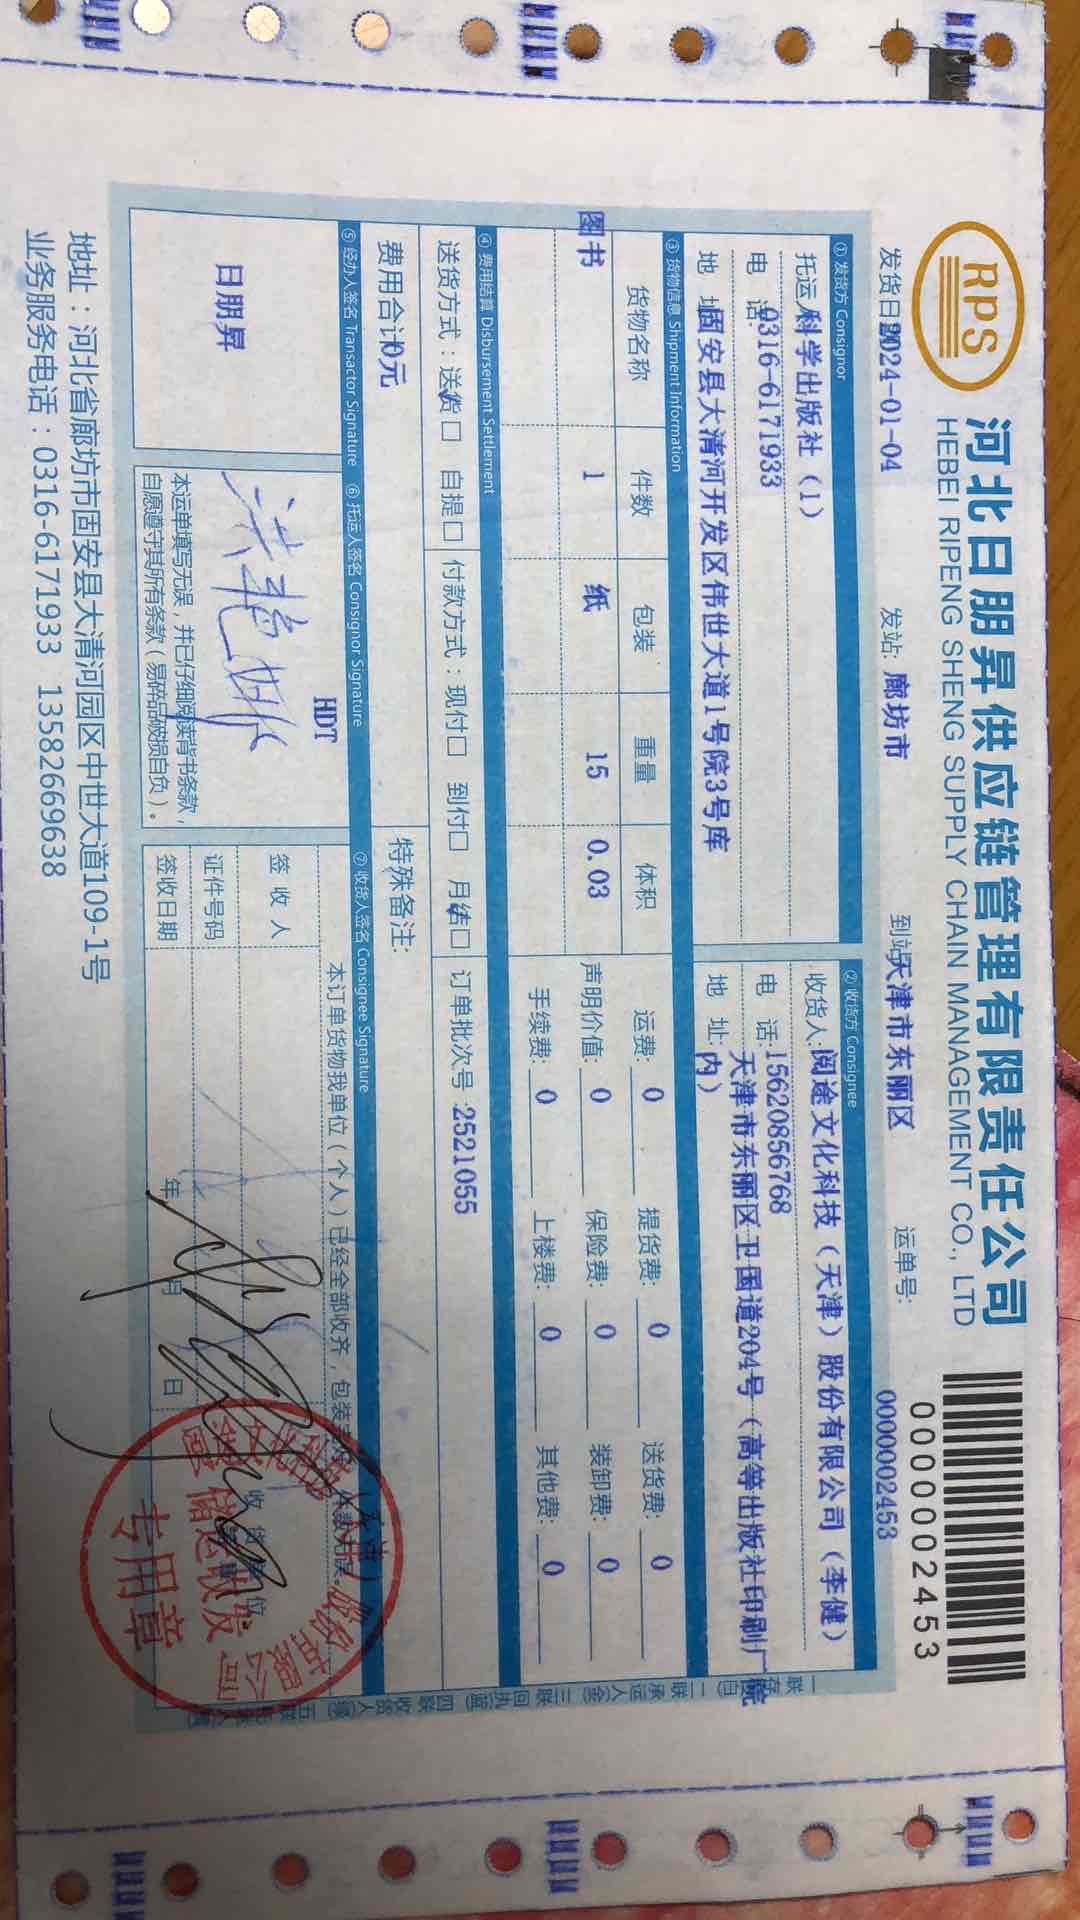 RPS
河北日朋昇供应链管理有限责任公司
HEBEI RIPENG SHENG SUPPLY CHAIN MANAGEMENT CO., LTD
0000002453
发货日 2024-01-04 发站: 廊坊市 到站 天津市东丽区 运单号: 0000002453
① 发货方 Consignor
托运 科学出版社（1）
电 话: 0316-6171933
地 址 固安县大清河开发区伟世大道1号院3号库
② 收货方 Consignee
收货人: 阅途文化科技（天津）股份有限公司（李健）
电 话: 15620856768
地 址: 天津市东丽区卫国道204号（高等出版社印刷厂院内）
③ 货物信息 Shipment Information
货物名称 件数 包装 重量 体积
图书 1 纸 15 0.03
运费: 0 提货费: 0 送货费: 0
声明价值: 0 保险费: 0 装卸费: 0
手续费: 0 上楼费: 0 其他费: 0
④ 费用结算 Disbursement Settlement
送货方式：送货□ 自提□ 付款方式：现付□ 到付□ 月结□ 订单批次号 2521055
费用合计 0元 特殊备注:
⑤ 经办人签名 Transactor Signature
日朋昇
⑥ 托运人签名 Consignor Signature
HDT
本运单填写无误，并已仔细阅读背书条款，
自愿遵守其所有条款（易碎品破损自负）。
⑦ 收货人签名 Consignee Signature
本订单货物我单位（个人）已经全部收齐，包装
件数无误。
签 收 人
证件号码
签收日期 年 月 日
储运收发
专用章
地址：河北省廊坊市固安县大清河园区中世大道109-1号
业务服务电话：0316-6171933 13582669638